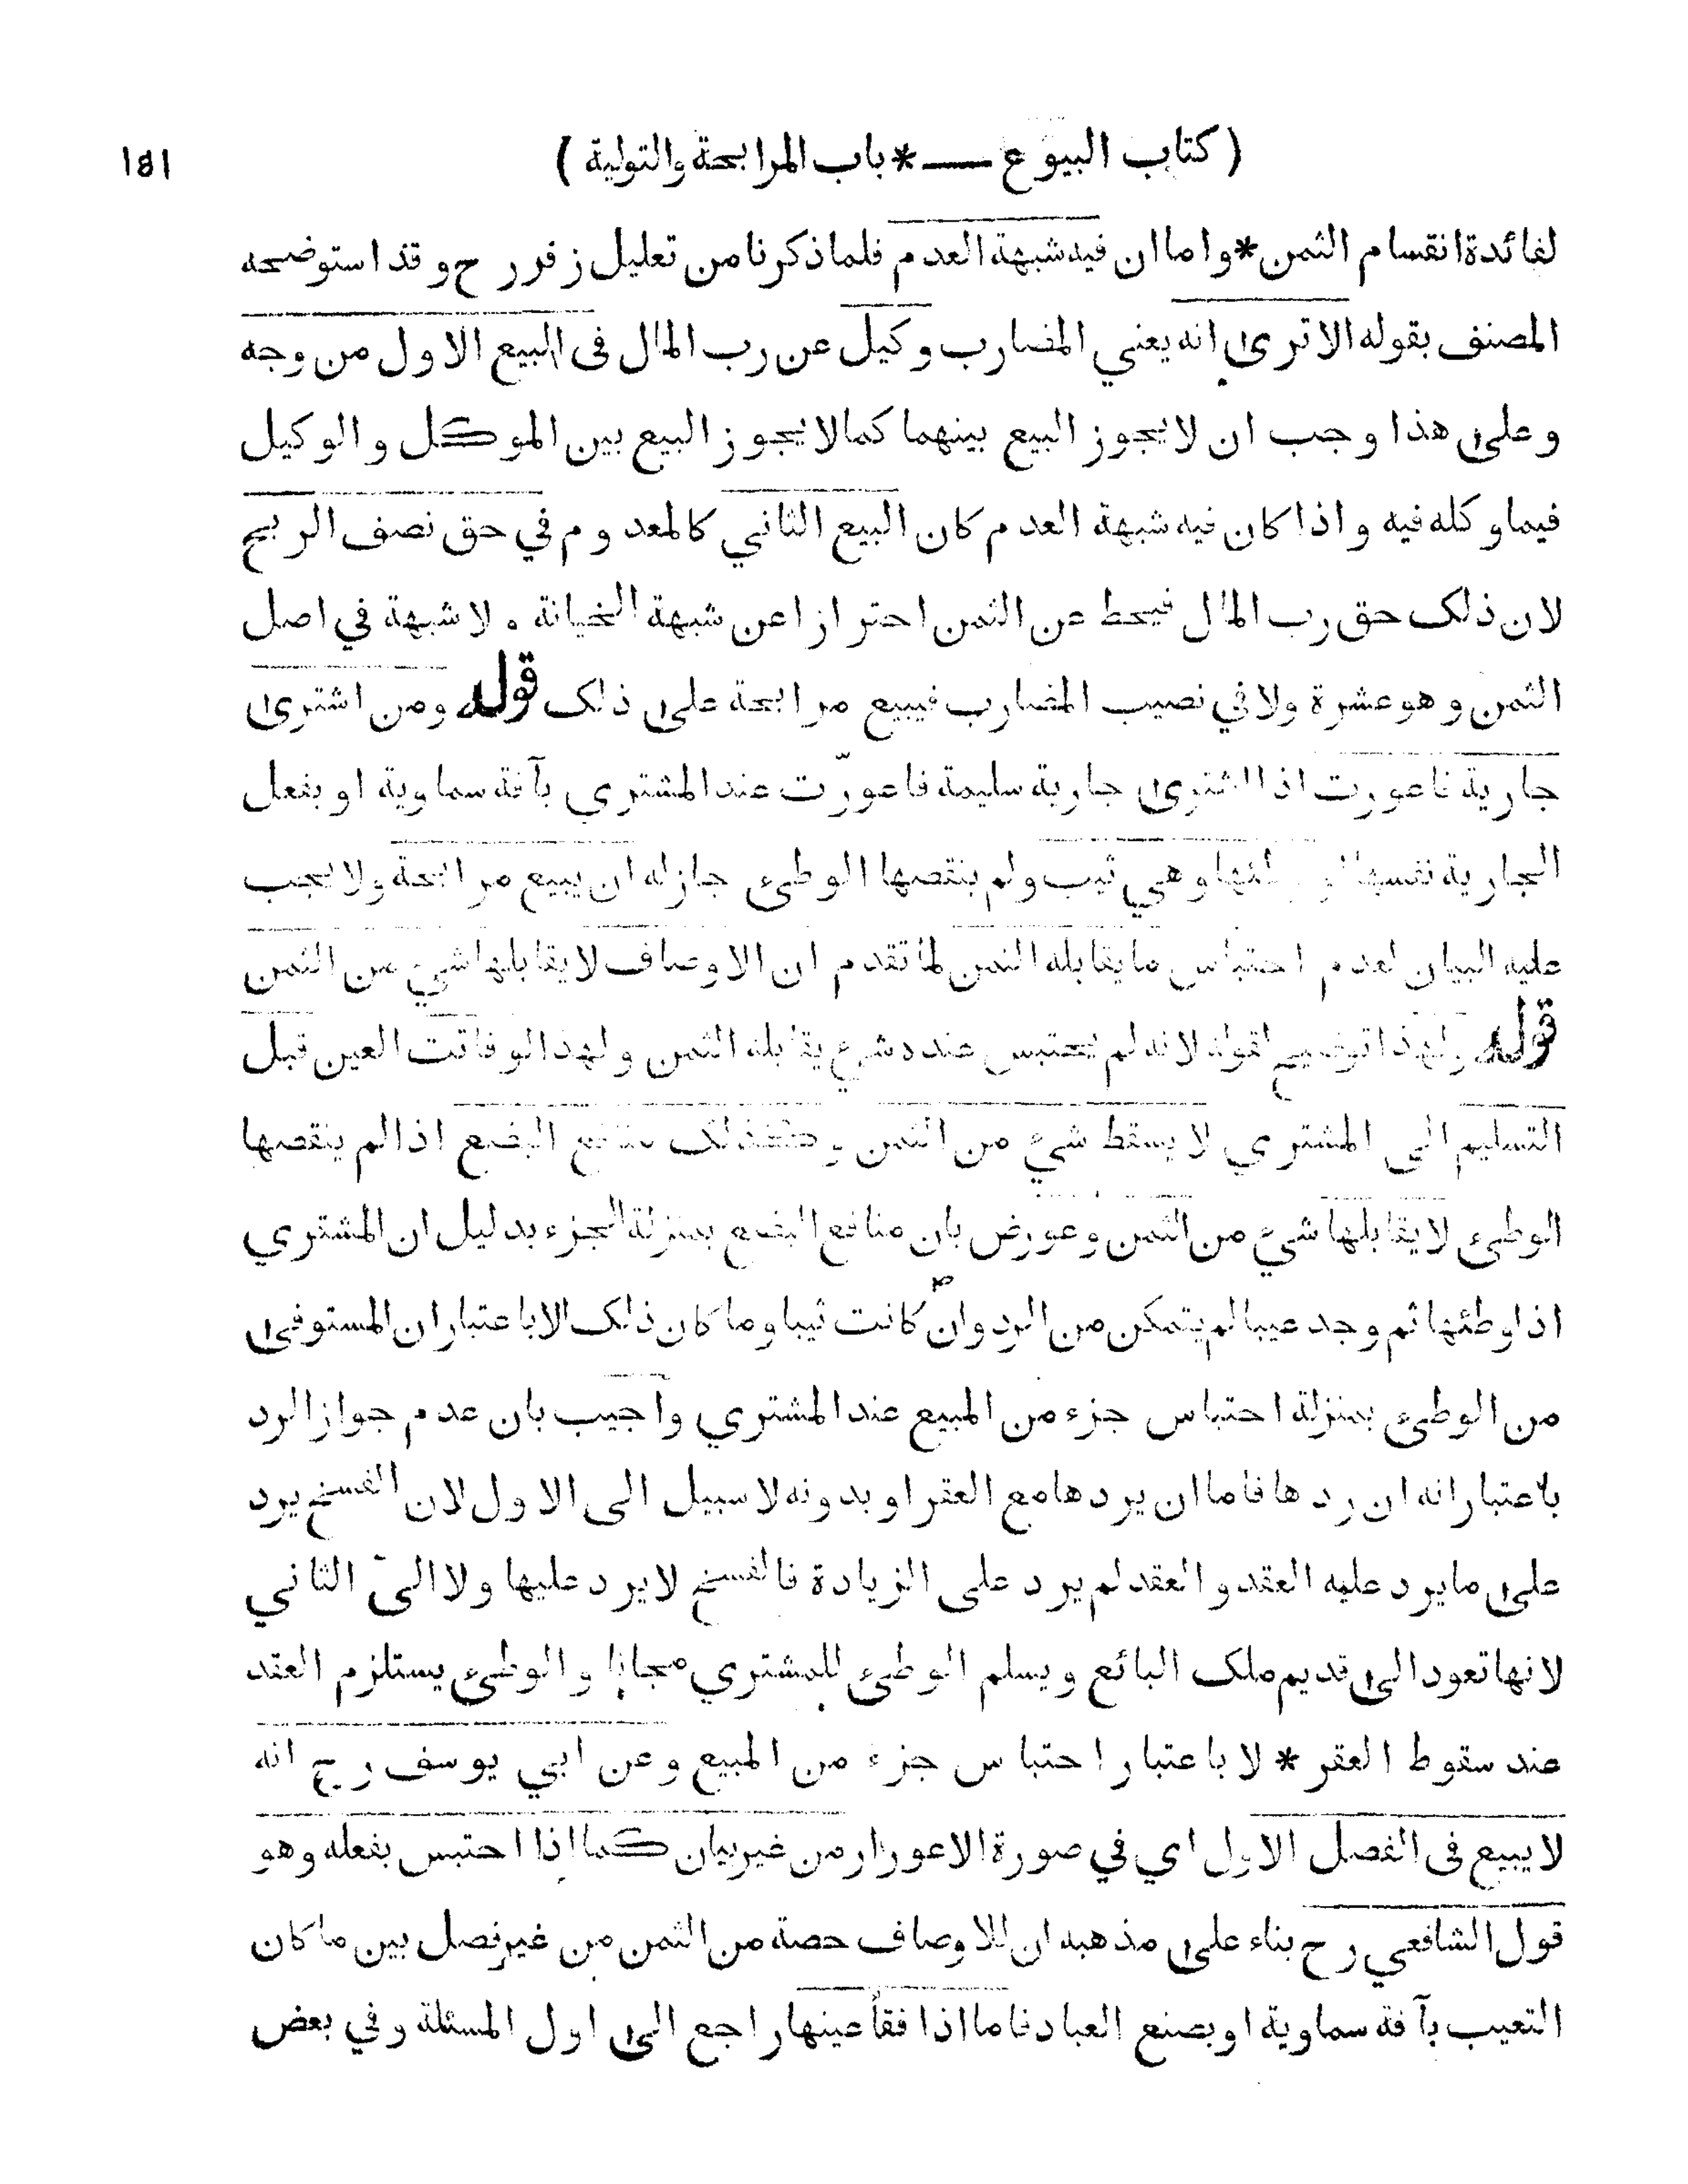 ( كتاب البيوع —— * باب المرابحة والتولية ) ١٨١
لفائدة انقسام الثمن * واما ان فيه شبهة العدم فلما ذكرنا من تعليل زفر رح وقد استوضحه
المصنف بقوله الا ترى انه يعني المضارب وكيل عن رب المال فى البيع الاول من وجه
وعلى هذا وجب ان لا يجوز البيع بينهما كما لا يجوز البيع بين الموكل والوكيل
فيما وكله فيه واذا كان فيه شبهة العدم كان البيع الثاني كالمعدوم في حق نصف الربح
لان ذلك حق رب المال فيحط عن الثمن احترازا عن شبهة الخيانة ٠ ولا شبهة في اصل
الثمن وهو عشرة ولا في نصيب المضارب فيبيع مرابحة على ذلك قوله ومن اشترى
جارية فاعورت اذا اشترى جارية سليمة فاعورّت عند المشتري بآفة سماوية او بفعل
الجارية نفسها او وطئها وهي ثيب ولم ينقصها الوطىء جاز له ان يبيع مرابحة ولا يجب
عليه البيان لعدم احتباس ما يقابله الثمن لما تقدم ان الاوصاف لا يقابلها شيء من الثمن
قوله ولهذا توضيح لقوله لانه لم يحتبس عنده شيء يقابله الثمن ولهذا لو فاتت العين قبل
التسليم الى المشتري لا يسقط شيء من الثمن وكذلك منافع البضع اذا لم ينقصها
الوطىء لا يقابلها شيء من الثمن وعورض بان منافع البضع بمنزلة الجزء بدليل ان المشتري
اذا وطئها ثم وجد عيبا لم يتمكن من الرد وان كانت ثيبا وما كان ذلك الا باعتبار ان المستوفى
من الوطىء بمنزلة احتباس جزء من المبيع عند المشتري واجيب بان عدم جواز الرد
باعتبار انه ان ردها فاما ان يردها مع العقر او بدونه لا سبيل الى الاول لان الفسخ يرد
على ما يرد عليه العقد والعقد لم يرد على الزيادة فالفسخ لا يرد عليها ولا الى الثاني
لانها تعود الى قديم ملك البائع ويسلم الوطىء للمشتري مجانا والوطىء يستلزم العقد
عند سقوط العقر * لا باعتبار احتباس جزء من المبيع وعن ابي يوسف رح انه
لا يبيع فى الفصل الاول اي في صورة الاعورار من غير بيان كما اذا احتبس بفعله وهو
قول الشافعي رح بناء على مذهبه ان للاوصاف حصة من الثمن من غير فصل بين ما كان
التعيب بآفة سماوية او بصنع العباد فاما اذا فقأ عينها راجع الى اول المسئلة وفي بعض